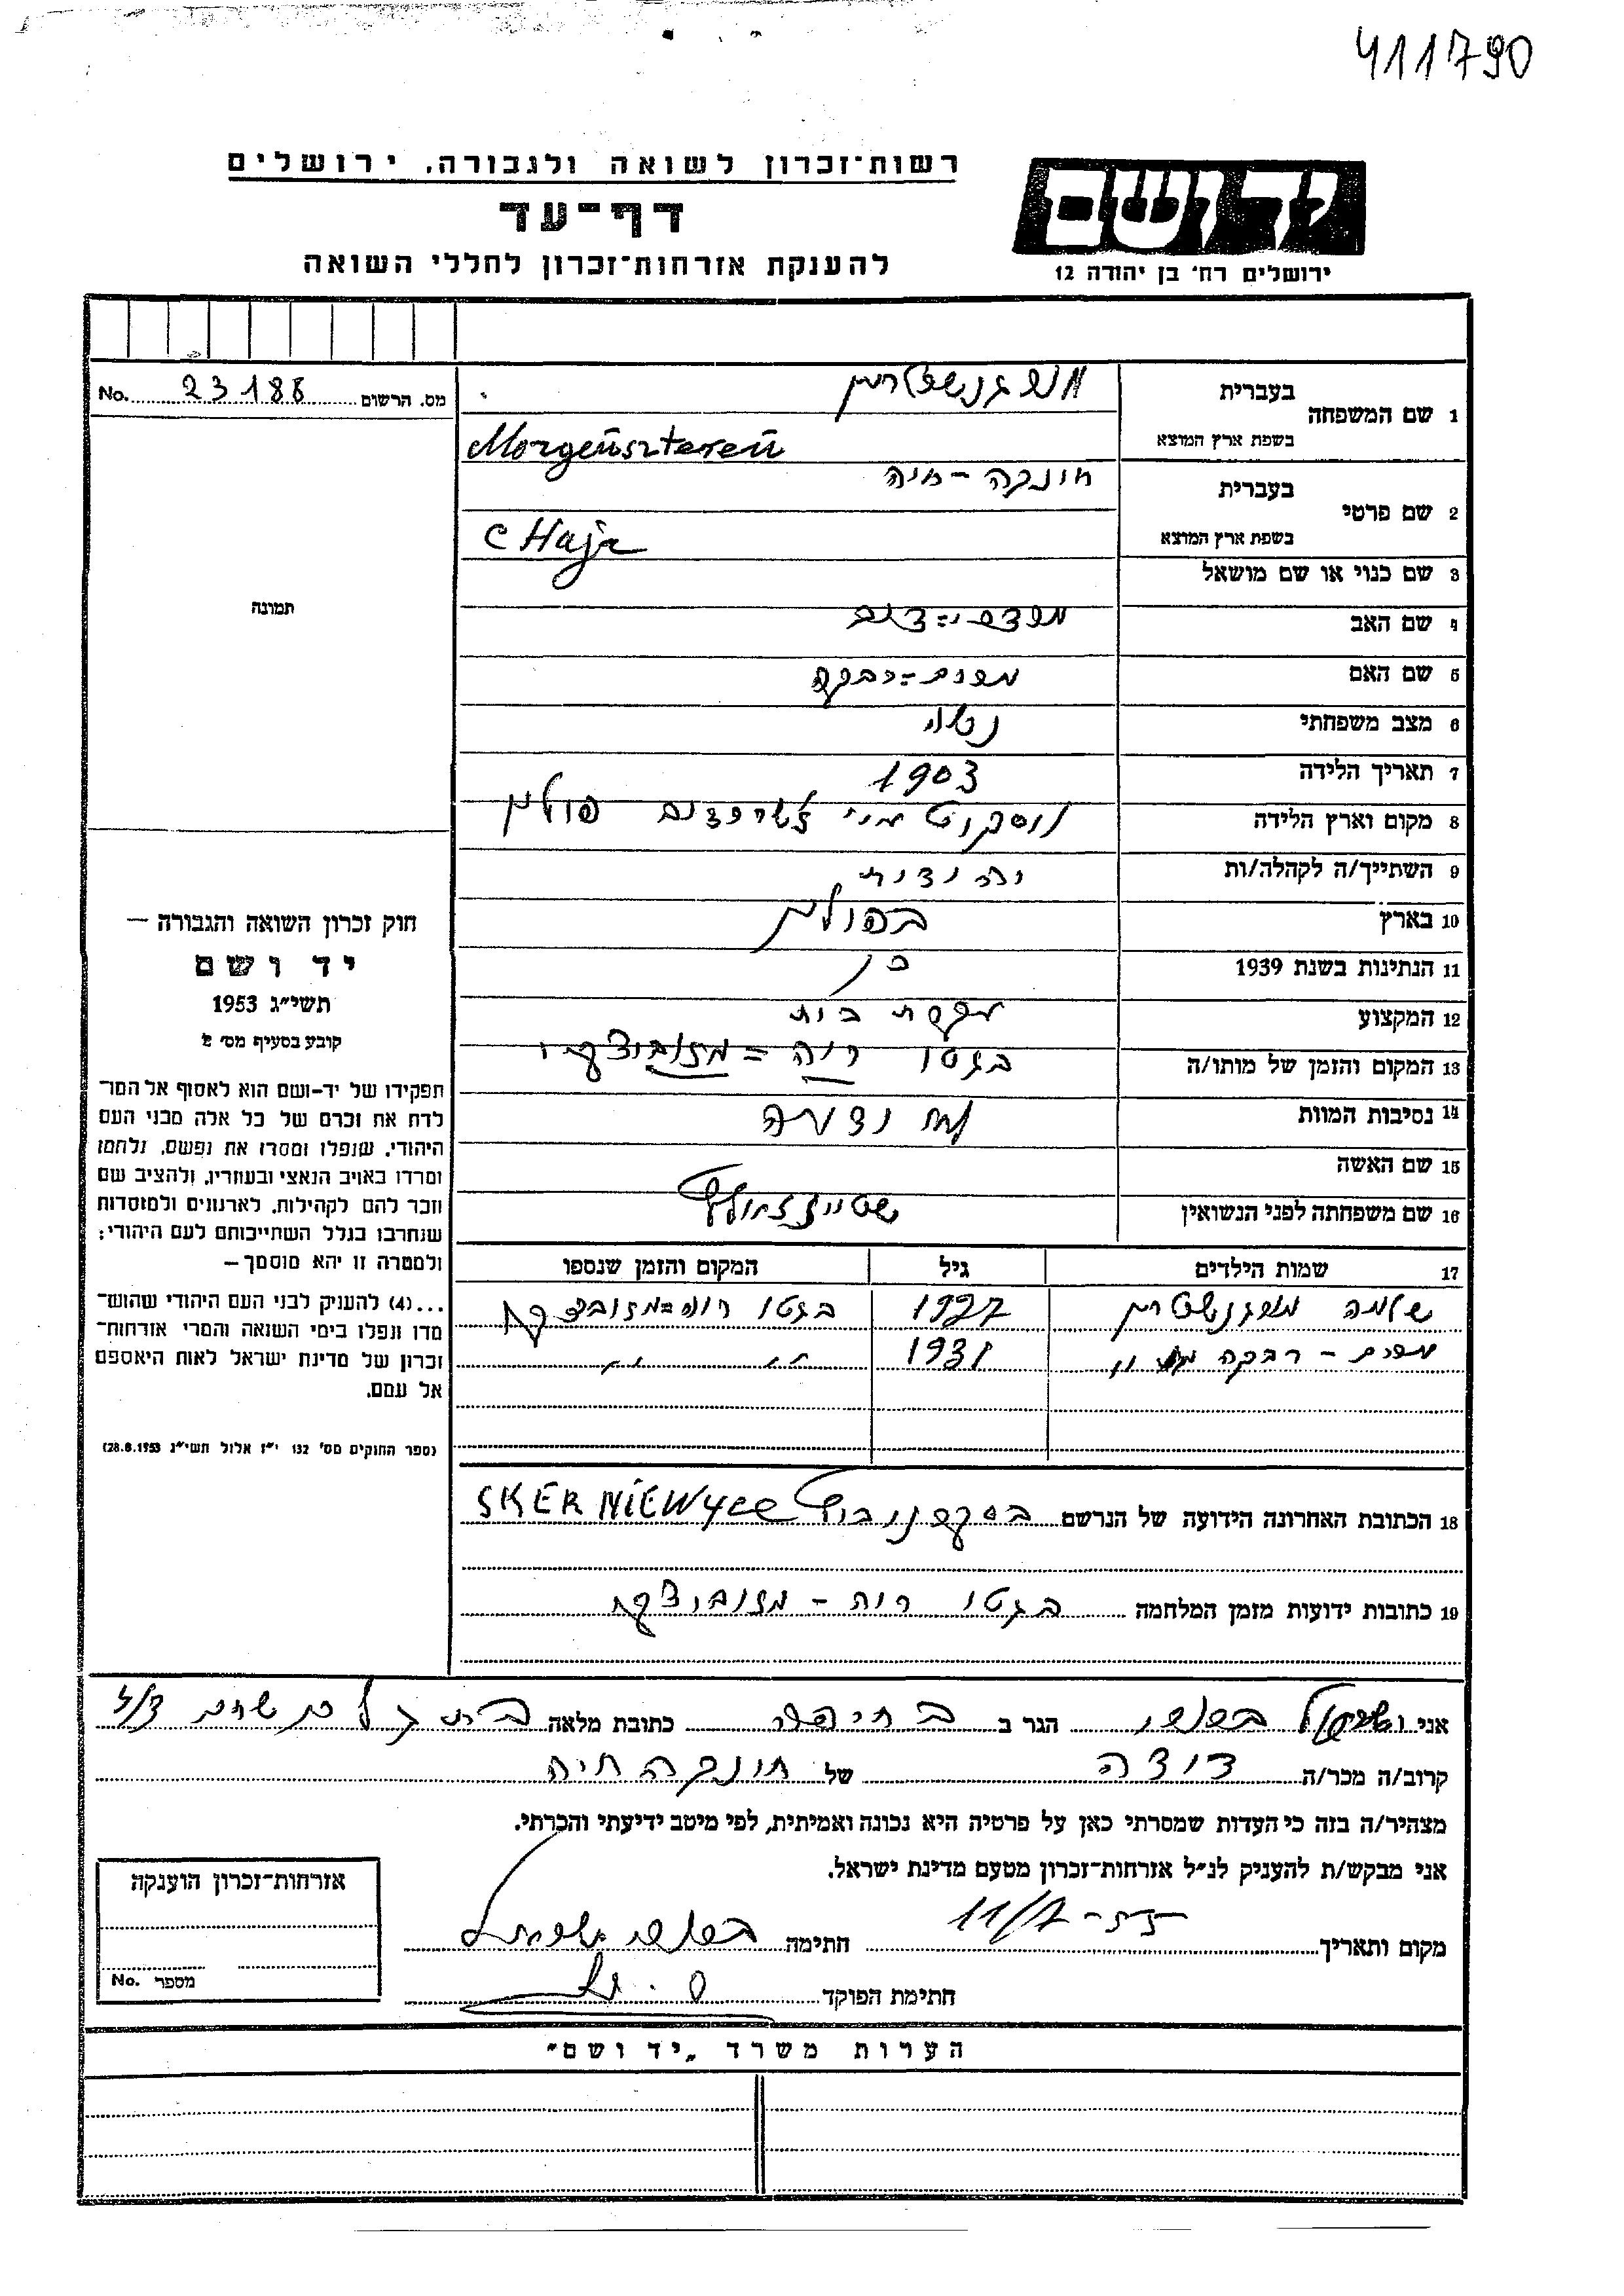 411790
רשות־זכרון לשואה ולגבורה, ירושלים
דף־עד
להענקת אזרחות־זכרון לחללי השואה
יד ושם
ירושלים רח' בן יהודה 12
מס. הרשום 23188 No.
תמונה
חוק זכרון השואה והגבורה —
יד ושם
תשי״ג 1953
קובע בסעיף מס' 2
תפקידו של יד-ושם הוא לאסוף אל המו־
לדת את זכרם של כל אלה מבני העם
היהודי, שנפלו ומסרו את נפשם, נלחמו
ומרדו באויב הנאצי ובעוזריו, ולהציב שם
וזכר להם לקהילות, לארגונים ולמוסדות
שנחרבו בגלל השתייכותם לעם היהודי;
ולמטרה זו יהא מוסמך —
...(4) להעניק לבני העם היהודי שהוש־
מדו ונפלו בימי השואה והמרי אזרחות־
זכרון של מדינת ישראל לאות היאספם
אל עמם.
(ספר החוקים מס' 132 י״ז אלול תשי״ג 28.8.1953)
1 שם המשפחה בעברית מורגנשטרין
בשפת ארץ המוצא Morgensztereń
2 שם פרטי בעברית חונקה - חיה
בשפת ארץ המוצא CHaja
3 שם כנוי או שם מושאל
4 שם האב
5 שם האם מרים = רבקה
6 מצב משפחתי נשוי
7 תאריך הלידה 1903
8 מקום וארץ הלידה פולין
9 השתייך/ה לקהלה/ות יהודית
10 בארץ בפולין
11 הנתינות בשנת 1939 כן
12 המקצוע עקרת בית
13 המקום והזמן של מותו/ה בגטו רוה = מזוביצקה
14 נסיבות המוות לא ידועה
15 שם האשה
16 שם משפחתה לפני הנשואין
17 שמות הילדים גיל המקום והזמן שנספו
שלמה מורגנשטרין 1927 בגטו רוה = מזוביצקה
מרים - רבקה " 1931 " "
18 הכתובת האחרונה הידועה של הנרשם SKERNIEWYCE
19 כתובות ידועות מזמן המלחמה בגטו רוה - מזוביצקה
אני הגר ב בחיפה כתובת מלאה
קרוב/ה מכר/ה דודה של חונקה חיה
מצהיר/ה בזה כי העדות שמסרתי כאן על פרטיה היא נכונה ואמיתית, לפי מיטב ידיעתי והכרתי.
אני מבקש/ת להעניק לנ״ל אזרחות־זכרון מטעם מדינת ישראל.
מקום ותאריך 11/7-55 חתימה
חתימת הפוקד
אזרחות־זכרון הוענקה
מספר No.
הערות משרד „יד ושם״